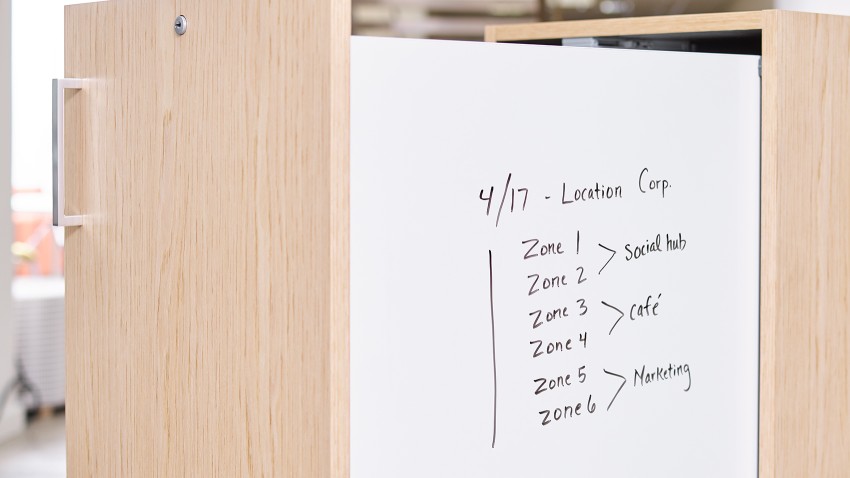 4/17 - Location Corp.
Zone 1
Zone 2
Social hub
Zone 3
Zone 4
café
Zone 5
Zone 6
Marketing